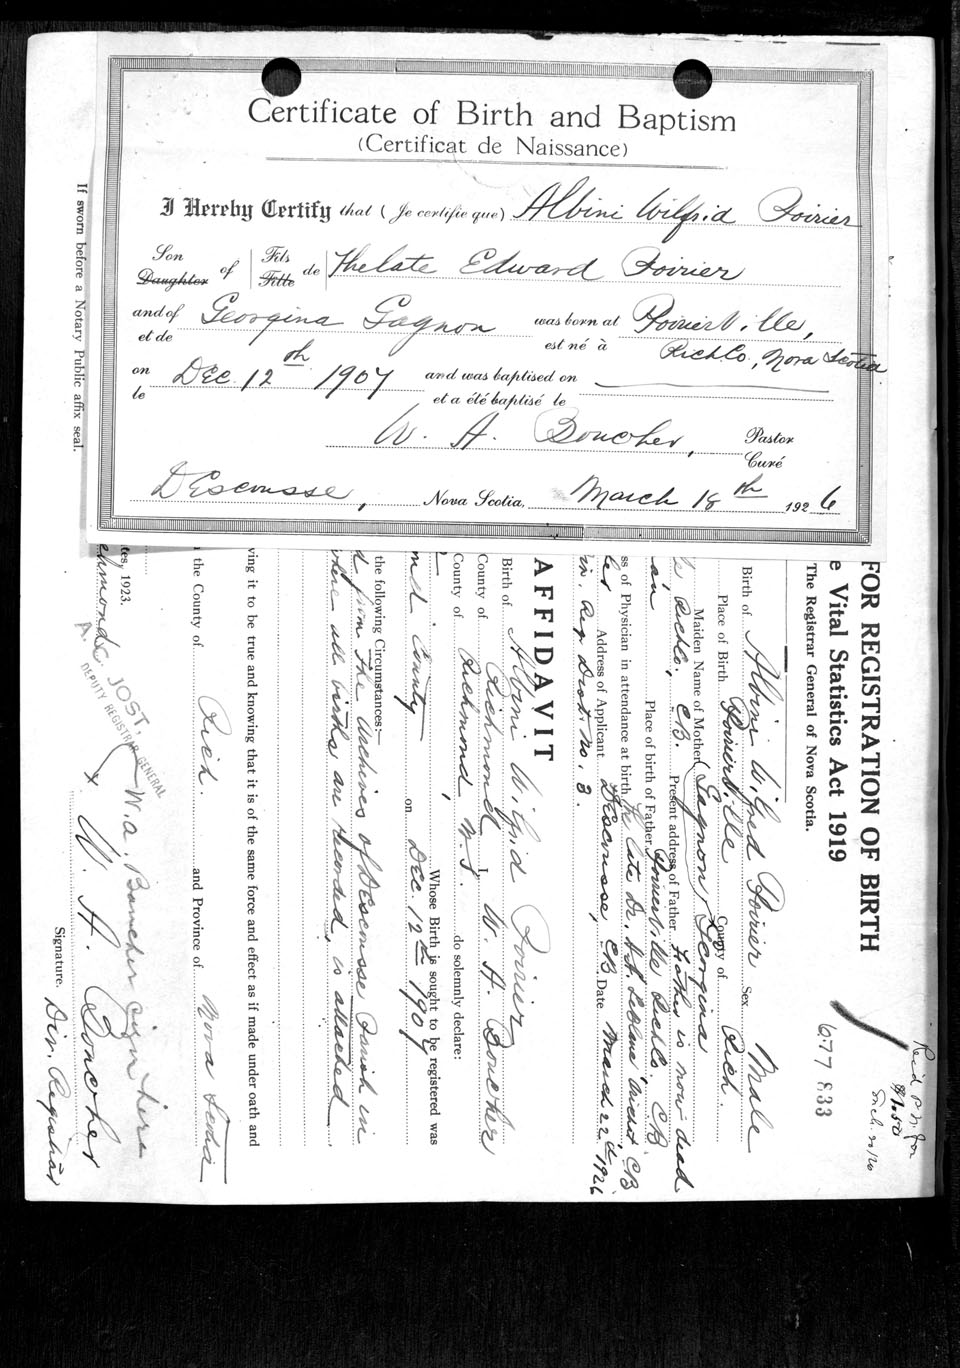 Certificate of Birth and Baptism
(Certificat de Naissance)
I Hereby Certify that (Je certifie que) Albini Wilfrid Poirier
Son Daughter of Fils Fille de The late Edward Poirier
and of et de Georgina Gagnon was born at est né à Poirierville,
Rich Co., Nova Scotia
on le Dec. 12th 1907 and was baptised on et a été baptisé le
W. A. Boucher, Pastor Curé
D'Escousse, Nova Scotia, March 18th 1926
If sworn before a Notary Public affix seal.
Rec'd P.N. for
$1.50
677 833
FOR REGISTRATION OF BIRTH
e Vital Statistics Act 1919
The Registrar General of Nova Scotia.
Birth of Albini Wilfred Poirier Sex Male
Place of Birth Poirierville County of Rich.
Maiden Name of Mother (Gagnon) Georgina
Rich Co., C.B. Present address of Father Father is now dead
Place of birth of Father Poirierville Rich Co. C.B.
ss of Physician in attendance at birth The late Dr. LeBlanc Arichat C.B.
Address of Applicant Descousse, C.B. Date March 22nd 1926
Reg. Dist. No. 3.
AFFIDAVIT
Birth of Albini Wilfrid Poirier
County of Richmond I, W. A. Boucher
County of Richmond, N.S. do solemnly declare:
Whose Birth is sought to be registered was
County on Dec. 12th 1907
the following Circumstances:
from the Archives of Descousse Parish in
where all births are recorded, is attached
ving it to be true and knowing that it is of the same force and effect as if made under oath and
the County of Rich. and Province of Nova Scotia
tes, 1923.
A. JOST,
DEPUTY REGISTRAR GENERAL
W. A. Boucher sign here
x W. A. Boucher
Signature.
Div. Registrar